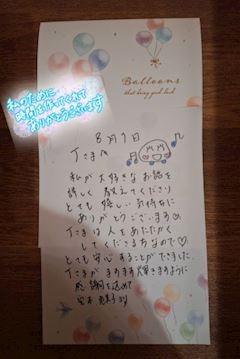 Balloons
that bring good luck
私のために
時間を作ってくれて
ありがとうございます
8月1日
Tさまへ
私が大好きなお話を
詳しく教えてくださり
とても嬉しい気持ちに
ありがとうございます
Tさまは人をあたたかく
してくださる方なので♡
とても安心することができました。
Tさまがますます輝きますように
感謝を込めて
より